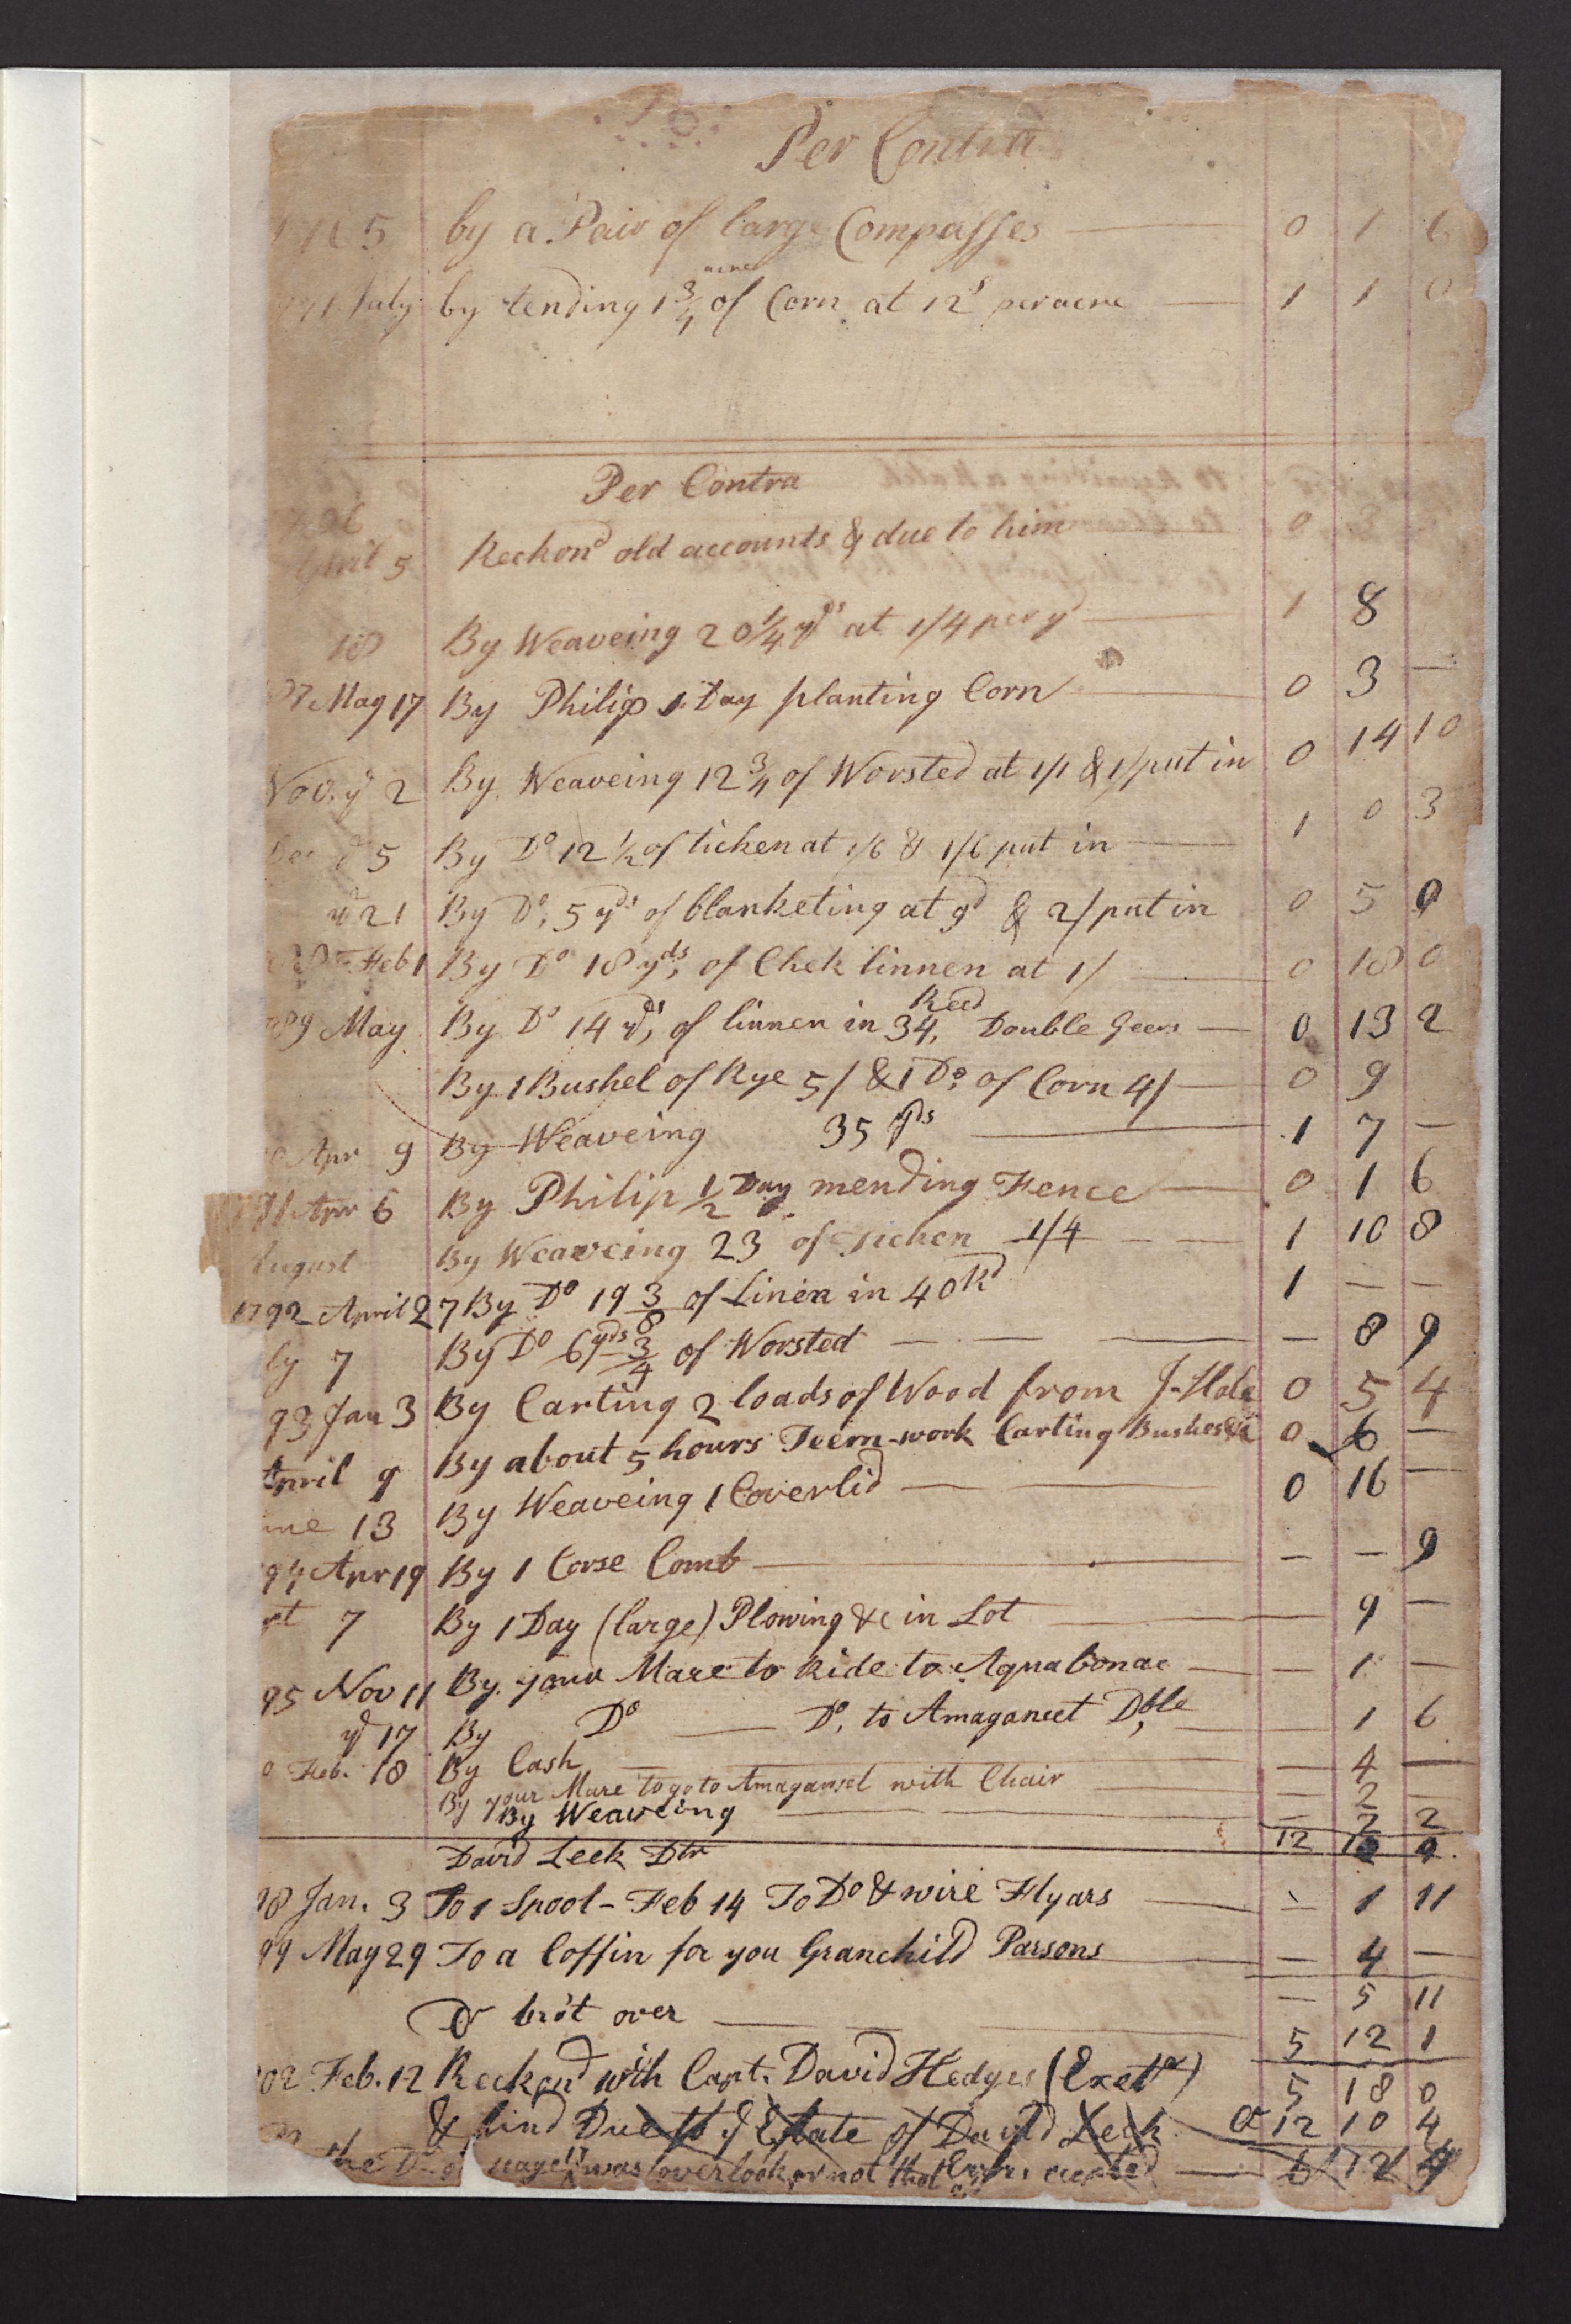 Per Contra
5 by a Pair of large Compasses 0 1 6
acre
July by tending 1 3/4 of Corn at 12s per acre 1 1 0
Per Contra
April 5 Reckond old accounts & due to him 0 3
18 By Weaveing 20 1/4 yds at 1/4 per yd 1 8
87 May 17 By Philip 1 Day planting Corn 0 3 —
Nov. ye 2 By Weaveing 12 3/4 of Worsted at 1/1 & 1/ put in 0 14 10
Dec ye 5 By Do 12 1/2 of ticken at 1/6 & 1/6 put in 1 0 3
ye 21 By Do, 5 yds of blanketing at 9d & 2/ put in 0 5 9
Feb 1 By Do 18 yds, of Chek linnen at 1/ 0 18 0
Reed
89 May By Do 14 yds, of linnen in 34, Double Geers 0 13 2
By 1 Bushel of Rye 5/ & 1 Do of Corn 4/ 0 9
Apr 9 By Weaveing 35 yds 1 7 —
91 Apr 6 By Philip 1/2 Day mending Fence 0 1 6
August By Weaveing 23 of ticken 1/4 1 10 8
1792 April 27 By Do 19 3/8 of Linen in 40 Rd 1 — —
ly 7 By Do 6 yds 3/4 of Worsted — 8 9
93 Jan 3 By Carting 2 loads of Wood from 0 5 4
April 9 By about 5 hours Teem-work Carting Bushes &c 0 6 —
ne 13 By Weaveing 1 Coverlid 0 16 —
94 Apr 19 By 1 Corse Comb — — 9
7 By 1 Day (large) Plowing &c in Lot 9 —
95 Nov 11 By your Mare to Ride to Aquabonac — 1 —
ye 17 By Do — Do, to Amaganset Dble 1 6
Feb. 18 By Cash — 4 —
By your Mare to go to Amaganset with Chair — 2 —
By Weaveing — 7 2
12 10 9
David Leek Dtr
98 Jan. 3 To 1 Spool - Feb 14 To Do & wire Flyars — 1 11
99 May 29 To a Coffin for you Granchild Parsons — 4 —
— 5 11
Dr bro't over 5 12 1
02 Feb. 12 Reckond with Capt. David Hedges (Exetr) 5 18 0
& find Due to ye Estate of David Leek 12 10 4
the was overlook not 6 12 4